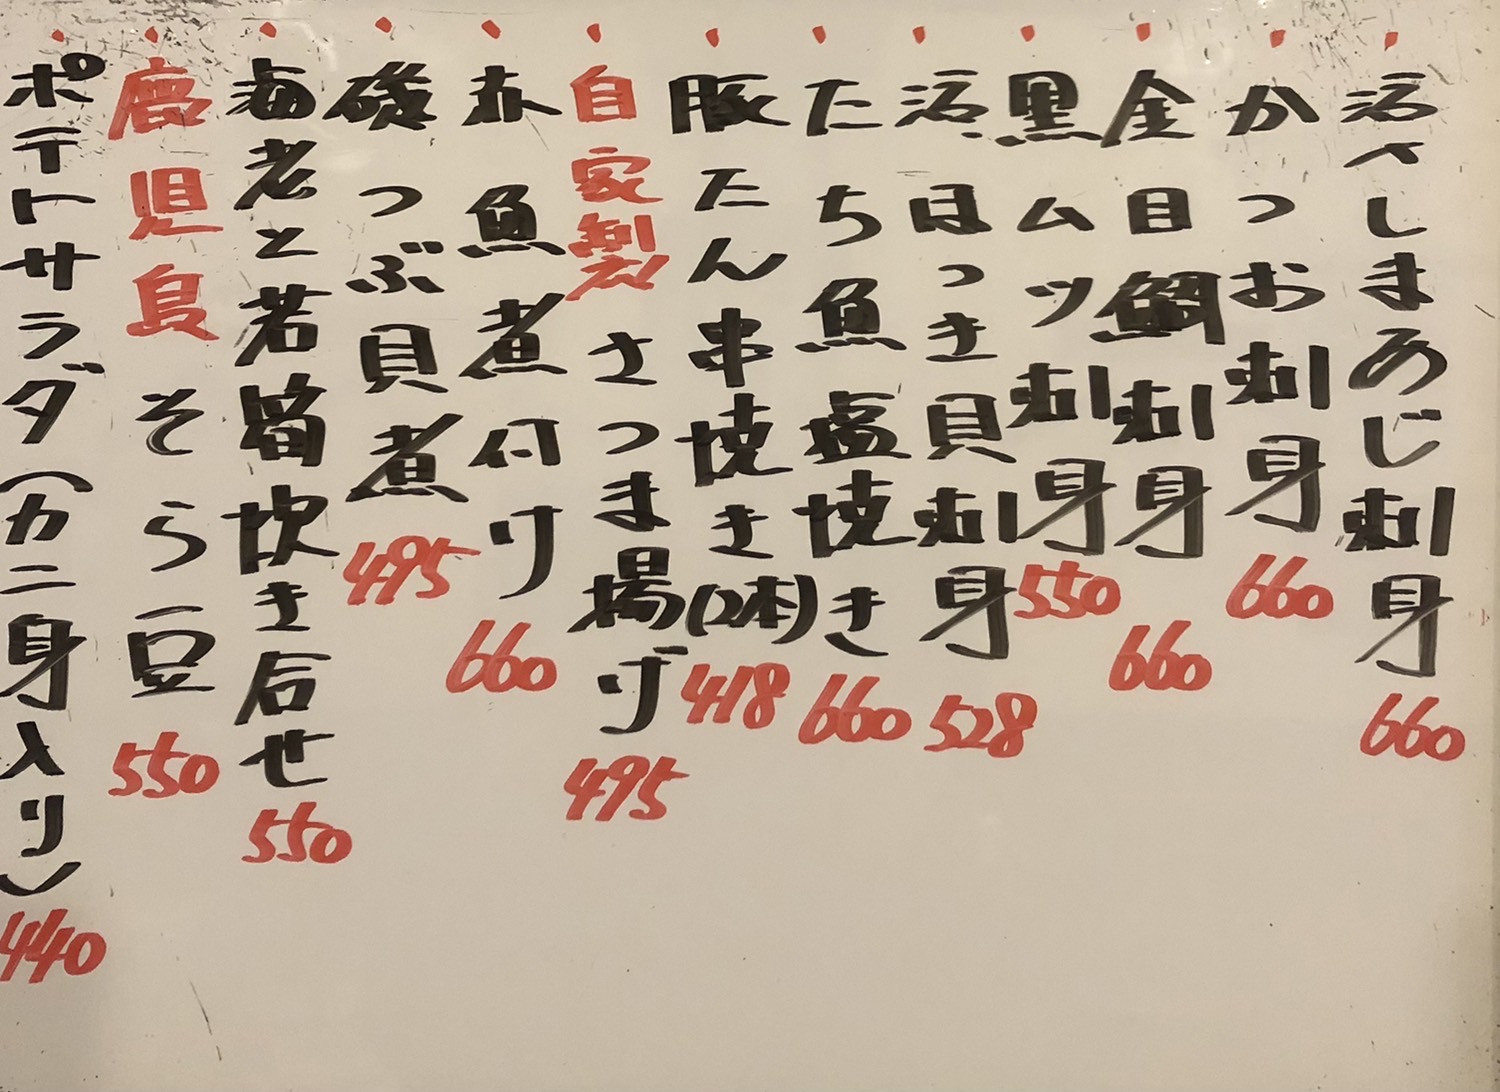 活〆しまあじ刺身 660
かつお刺身 660
金目鯛刺身 660
黒ムツ刺身 550
活ほっき貝刺身 528
たち魚塩焼き 660
豚たん串焼き(2本) 418
自家製さつま揚げ 495
赤魚煮付け 660
磯つぶ貝煮 495
海老と若筍炊き合せ 550
鹿児島そら豆 550
ポテトサラダ(カニ身入り) 440